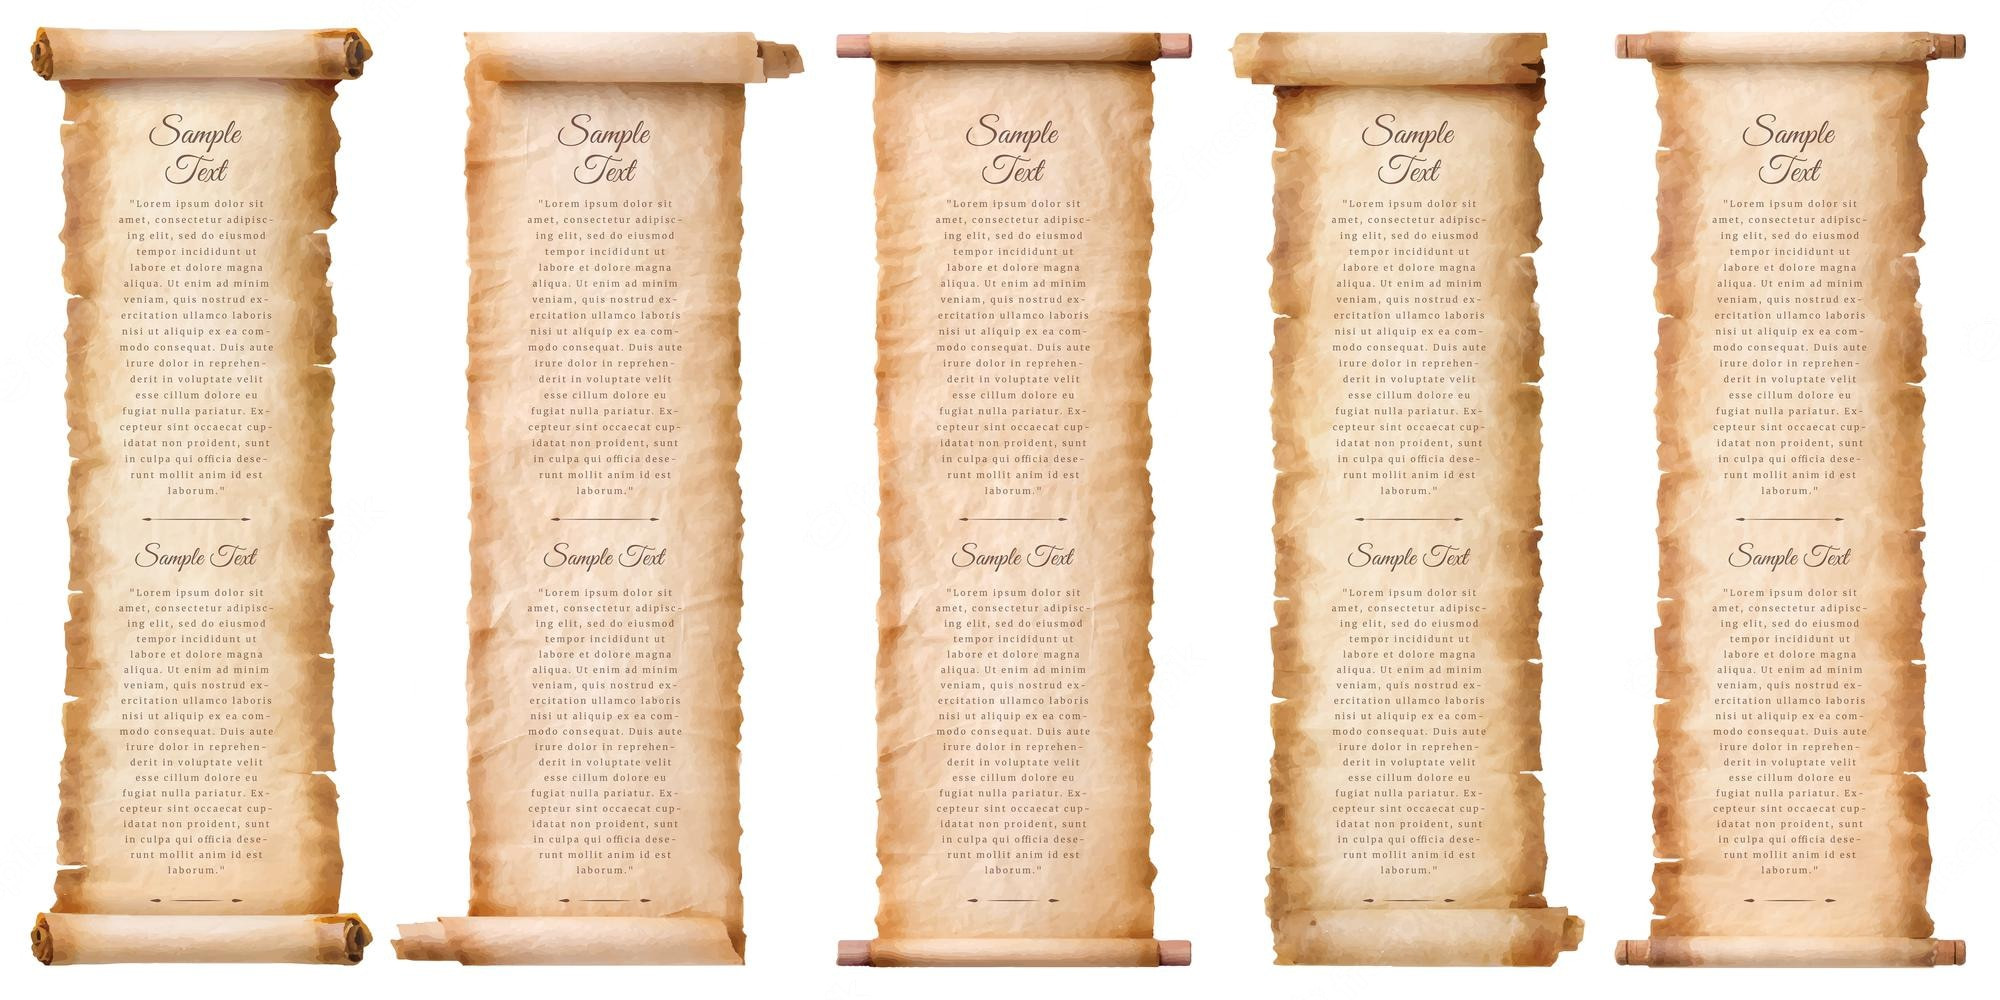 Sample
Text
"Lorem ipsum dolor sit
amet, consectetur adipisc-
ing elit, sed do eiusmod
tempor incididunt ut
labore et dolore magna
aliqua. Ut enim ad minim
veniam, quis nostrud ex-
ercitation ullamco laboris
nisi ut aliquip ex ea com-
modo consequat. Duis aute
irure dolor in reprehen-
derit in voluptate velit
esse cillum dolore eu
fugiat nulla pariatur. Ex-
cepteur sint occaecat cup-
idatat non proident, sunt
in culpa qui officia dese-
runt mollit anim id est
laborum."
Sample Text
"Lorem ipsum dolor sit
amet, consectetur adipisc-
ing elit, sed do eiusmod
tempor incididunt ut
labore et dolore magna
aliqua. Ut enim ad minim
veniam, quis nostrud ex-
ercitation ullamco laboris
nisi ut aliquip ex ea com-
modo consequat. Duis aute
irure dolor in reprehen-
derit in voluptate velit
esse cillum dolore eu
fugiat nulla pariatur. Ex-
cepteur sint occaecat cup-
idatat non proident, sunt
in culpa qui officia dese-
runt mollit anim id est
laborum."
Sample
Text
"Lorem ipsum dolor sit
amet, consectetur adipisc-
ing elit, sed do eiusmod
tempor incididunt ut
labore et dolore magna
aliqua. Ut enim ad minim
veniam, quis nostrud ex-
ercitation ullamco laboris
nisi ut aliquip ex ea com-
modo consequat. Duis aute
irure dolor in reprehen-
derit in voluptate velit
esse cillum dolore eu
fugiat nulla pariatur. Ex-
cepteur sint occaecat cup-
idatat non proident, sunt
in culpa qui officia dese-
runt mollit anim id est
laborum."
Sample Text
"Lorem ipsum dolor sit
amet, consectetur adipisc-
ing elit, sed do eiusmod
tempor incididunt ut
labore et dolore magna
aliqua. Ut enim ad minim
veniam, quis nostrud ex-
ercitation ullamco laboris
nisi ut aliquip ex ea com-
modo consequat. Duis aute
irure dolor in reprehen-
derit in voluptate velit
esse cillum dolore eu
fugiat nulla pariatur. Ex-
cepteur sint occaecat cup-
idatat non proident, sunt
in culpa qui officia dese-
runt mollit anim id est
laborum."
Sample
Text
"Lorem ipsum dolor sit
amet, consectetur adipisc-
ing elit, sed do eiusmod
tempor incididunt ut
labore et dolore magna
aliqua. Ut enim ad minim
veniam, quis nostrud ex-
ercitation ullamco laboris
nisi ut aliquip ex ea com-
modo consequat. Duis aute
irure dolor in reprehen-
derit in voluptate velit
esse cillum dolore eu
fugiat nulla pariatur. Ex-
cepteur sint occaecat cup-
idatat non proident, sunt
in culpa qui officia dese-
runt mollit anim id est
laborum."
Sample Text
"Lorem ipsum dolor sit
amet, consectetur adipisc-
ing elit, sed do eiusmod
tempor incididunt ut
labore et dolore magna
aliqua. Ut enim ad minim
veniam, quis nostrud ex-
ercitation ullamco laboris
nisi ut aliquip ex ea com-
modo consequat. Duis aute
irure dolor in reprehen-
derit in voluptate velit
esse cillum dolore eu
fugiat nulla pariatur. Ex-
cepteur sint occaecat cup-
idatat non proident, sunt
in culpa qui officia dese-
runt mollit anim id est
laborum."
Sample
Text
"Lorem ipsum dolor sit
amet, consectetur adipisc-
ing elit, sed do eiusmod
tempor incididunt ut
labore et dolore magna
aliqua. Ut enim ad minim
veniam, quis nostrud ex-
ercitation ullamco laboris
nisi ut aliquip ex ea com-
modo consequat. Duis aute
irure dolor in reprehen-
derit in voluptate velit
esse cillum dolore eu
fugiat nulla pariatur. Ex-
cepteur sint occaecat cup-
idatat non proident, sunt
in culpa qui officia dese-
runt mollit anim id est
laborum."
Sample Text
"Lorem ipsum dolor sit
amet, consectetur adipisc-
ing elit, sed do eiusmod
tempor incididunt ut
labore et dolore magna
aliqua. Ut enim ad minim
veniam, quis nostrud ex-
ercitation ullamco laboris
nisi ut aliquip ex ea com-
modo consequat. Duis aute
irure dolor in reprehen-
derit in voluptate velit
esse cillum dolore eu
fugiat nulla pariatur. Ex-
cepteur sint occaecat cup-
idatat non proident, sunt
in culpa qui officia dese-
runt mollit anim id est
laborum."
Sample
Text
"Lorem ipsum dolor sit
amet, consectetur adipisc-
ing elit, sed do eiusmod
tempor incididunt ut
labore et dolore magna
aliqua. Ut enim ad minim
veniam, quis nostrud ex-
ercitation ullamco laboris
nisi ut aliquip ex ea com-
modo consequat. Duis aute
irure dolor in reprehen-
derit in voluptate velit
esse cillum dolore eu
fugiat nulla pariatur. Ex-
cepteur sint occaecat cup-
idatat non proident, sunt
in culpa qui officia dese-
runt mollit anim id est
laborum."
Sample Text
"Lorem ipsum dolor sit
amet, consectetur adipisc-
ing elit, sed do eiusmod
tempor incididunt ut
labore et dolore magna
aliqua. Ut enim ad minim
veniam, quis nostrud ex-
ercitation ullamco laboris
nisi ut aliquip ex ea com-
modo consequat. Duis aute
irure dolor in reprehen-
derit in voluptate velit
esse cillum dolore eu
fugiat nulla pariatur. Ex-
cepteur sint occaecat cup-
idatat non proident, sunt
in culpa qui officia dese-
runt mollit anim id est
laborum."